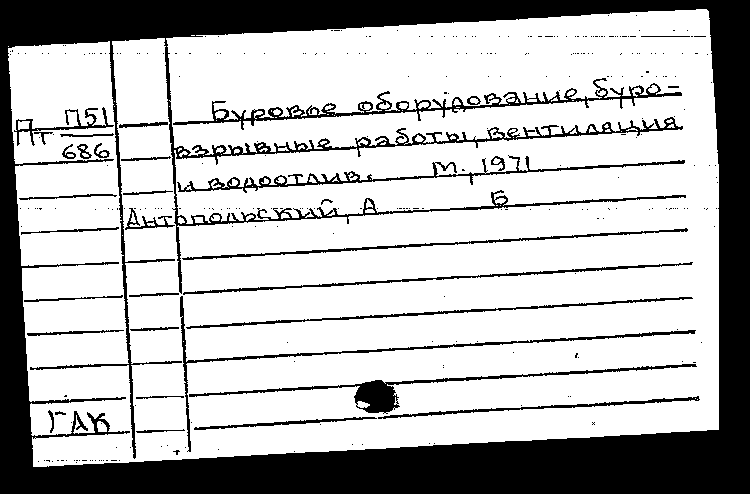 Пт П51
686
Буровое оборудование, буро=
взрывные работы, вентиляция
и водоотлив. М., 1971
Антопольский, А Б
ГАК